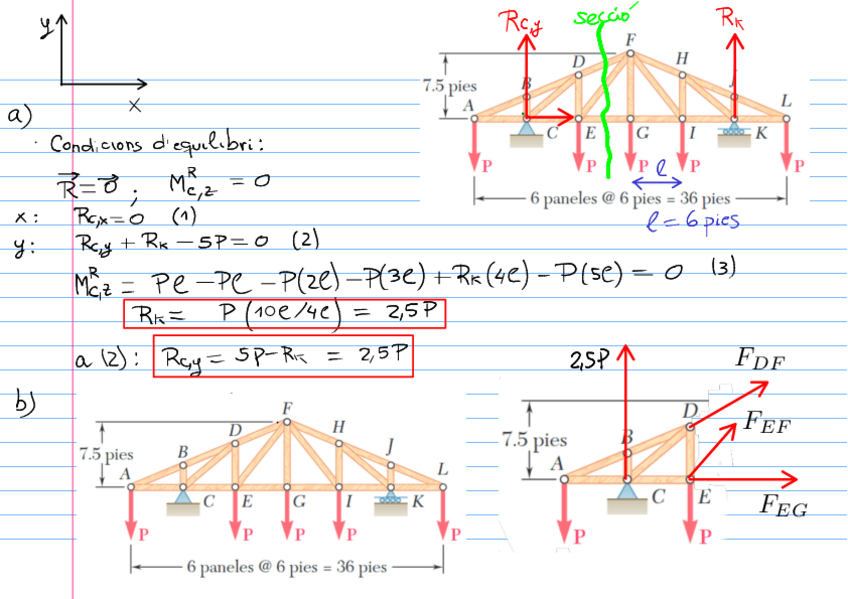 y
x
a)
· Condicions d'equilibri:
R⃗ = 0⃗ ; M^R_{C,z} = 0
x: R_{C,x} = 0 (1)
y: R_{C,y} + R_K − 5P = 0 (2)
M^R_{C,z} = Pℓ − Pℓ − P(2ℓ) − P(3ℓ) + R_K(4ℓ) − P(5ℓ) = 0 (3)
R_K = P(10ℓ/4ℓ) = 2,5P
a (2): R_{C,y} = 5P − R_K = 2,5P
R_{C,y} secció R_K
F
D H
7.5 pies
B J
A L
C E G I K
P P P P P
ℓ
6 paneles @ 6 pies = 36 pies
ℓ = 6 pies
b)
F
D H
7.5 pies B J
A L
C E G I K
P P P P P
6 paneles @ 6 pies = 36 pies
2,5P F_{DF}
D
F_{EF}
7.5 pies B
A
C E F_{EG}
P P